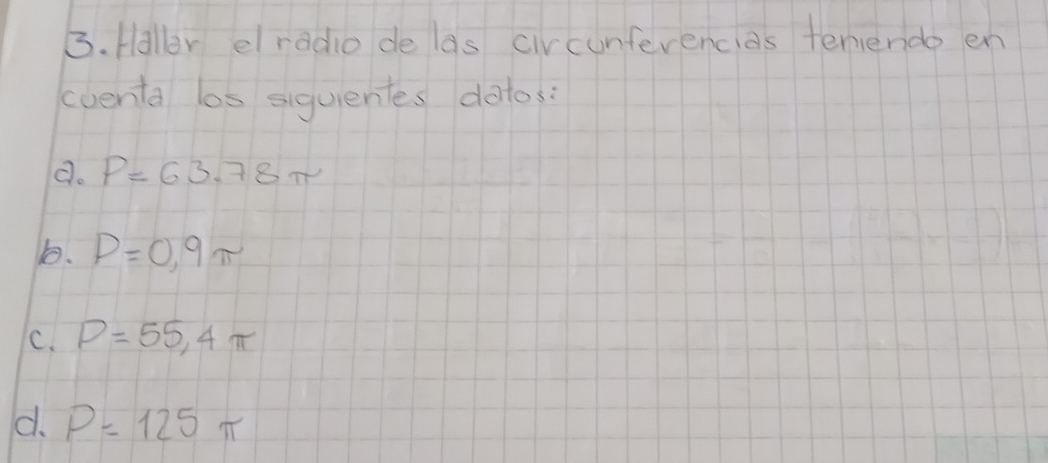 3. Hallar el radio de las circunferencias teniendo en
cuenta los siguientes datos:
a. P = 63.78 π
b. P = 0,9 π
c. P = 55,4 π
d. P = 125 π